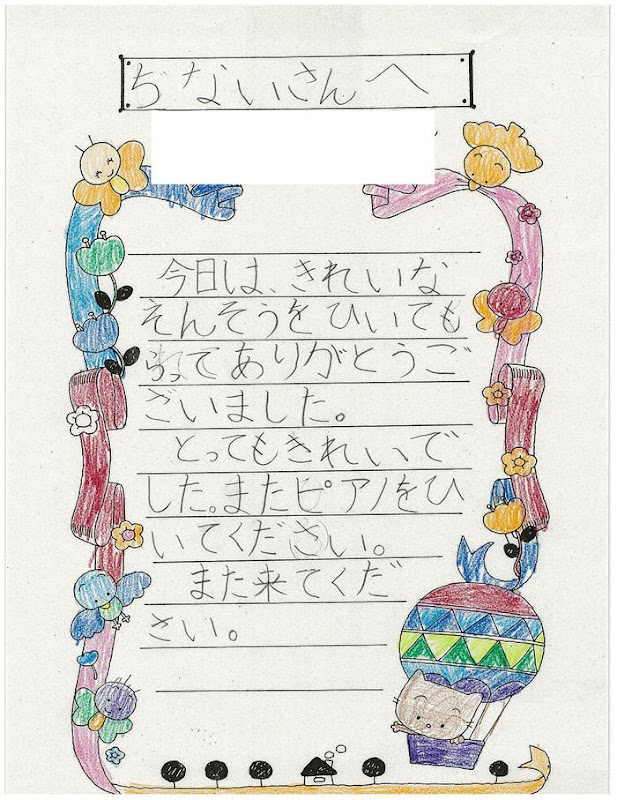 ぢないさんへ
今日は、きれいな
そんそうをひいても
らってありがとうご
ざいました。
とってもきれいで
した。またピアノをひ
いてください。
また来てくだ
さい。